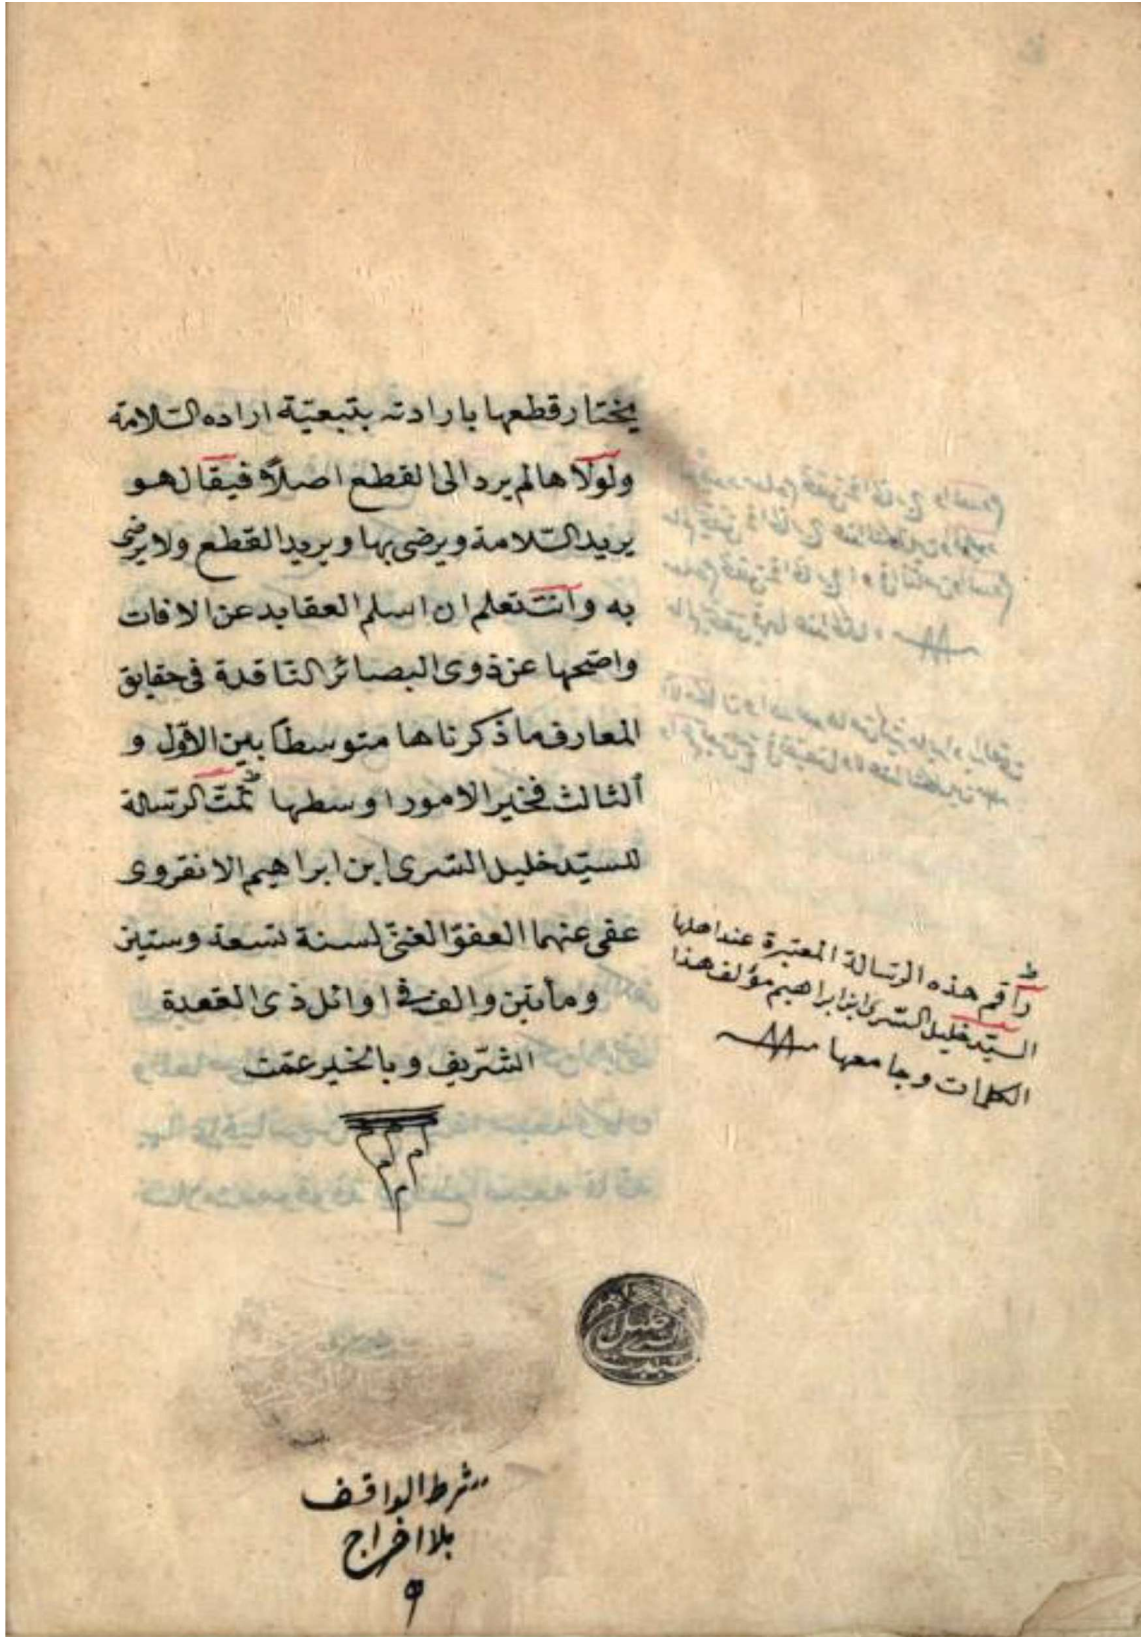 يختار قطعها بارادته بتبعيّة اراده السّلامة
ولولاها لم يرد الى القطع اصلاً فيقال هو
يريد السّلامة ويرضى بها ويريد القطع ولا يرضى
به وانت تعلم ان اسلم العقايد عن الافات
واضحها عن ذوى البصائر النّاقدة فى حقايق
المعارف ما ذكرناها متوسطًا بين الاوّل و
الثالث فخير الامور اوسطها تمّت الرّسالة
للسيّد خليل السّرى ابن ابراهيم الانقروى
عفى عنهما العفوّ الغنىّ لسنة تسعة وستين
ومأتين والف فى اوائل ذى القعدة
الشّريف وبالخير عمّت
راقم هذه الرّسالة المعتبرة عند اهلها
السيّد خليل السّرى ابن ابراهيم مؤلف هذا
الكلمات وجامعها
شرط الواقف
بلا اخراج